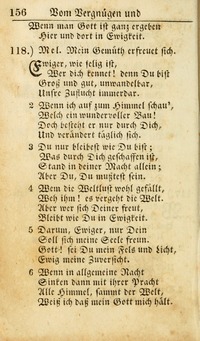 156 Vom Vergnügen und
Wenn man Gott ist ganz ergeben
Hier und dort in Ewigkeit.
118.) Mel. Mein Gemüth erfreuet sich.
Ewiger, wie selig ist,
Wer dich kennet! denn Du bist
Groß und gut, unwandelbar,
Unsre Zuflucht immerdar.
2 Wenn ich auf zum Himmel schau',
Welch ein wundervoller Bau!
Doch besteht er nur durch Dich,
Und verändert täglich sich.
3 Du nur bleibest wie Du bist;
Was durch Dich geschaffen ist,
Stand in deiner Macht allein;
Aber Du, Du mußtest sein.
4 Wem die Weltlust wohl gefällt,
Weh ihm! es vergeht die Welt.
Aber wer sich Deiner freut,
Bleibt wie Du in Ewigkeit.
5 Darum, Ewiger, nur Dein
Soll sich meine Seele freun.
Gott! sei Du mein Fels und Licht,
Ewig meine Zuversicht.
6 Wenn in allgemeine Nacht
Sinken dann mit ihrer Pracht
Alle Himmel, sammt der Welt,
Weiß ich daß mein Gott mich hält.